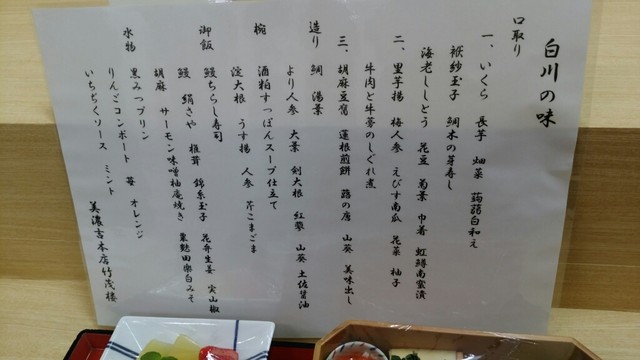 白川の味
口取り
一、いくら 長芋 畑菜 蒟蒻白和え
袱紗玉子 鯛木の芽寿し
海老ししとう 花豆 菊葉 巾着 虹鱒南蛮漬
二、里芋揚 梅人参 えびす南瓜 花菜 柚子
牛肉と牛蒡のしぐれ煮
三、胡麻豆腐 蓮根煎餅 蕗の唐 山葵 美味出し
造り 鯛 湯葉
より人参 大葉 剣大根 紅蓼 山葵 土佐醤油
椀 酒粕すっぽんスープ仕立て
淀大根 うす揚 人参 芹こまごま
御飯 鰻ちらし寿司
鰻 絹さや 椎茸 錦糸玉子 花弁生姜 実山椒
胡麻 サーモン味噌柚庵焼き 粟麩田楽白みそ
水物 黒みつプリン
りんごコンポート 苺 オレンジ
いちぢくソース ミント
美濃吉本店竹茂楼